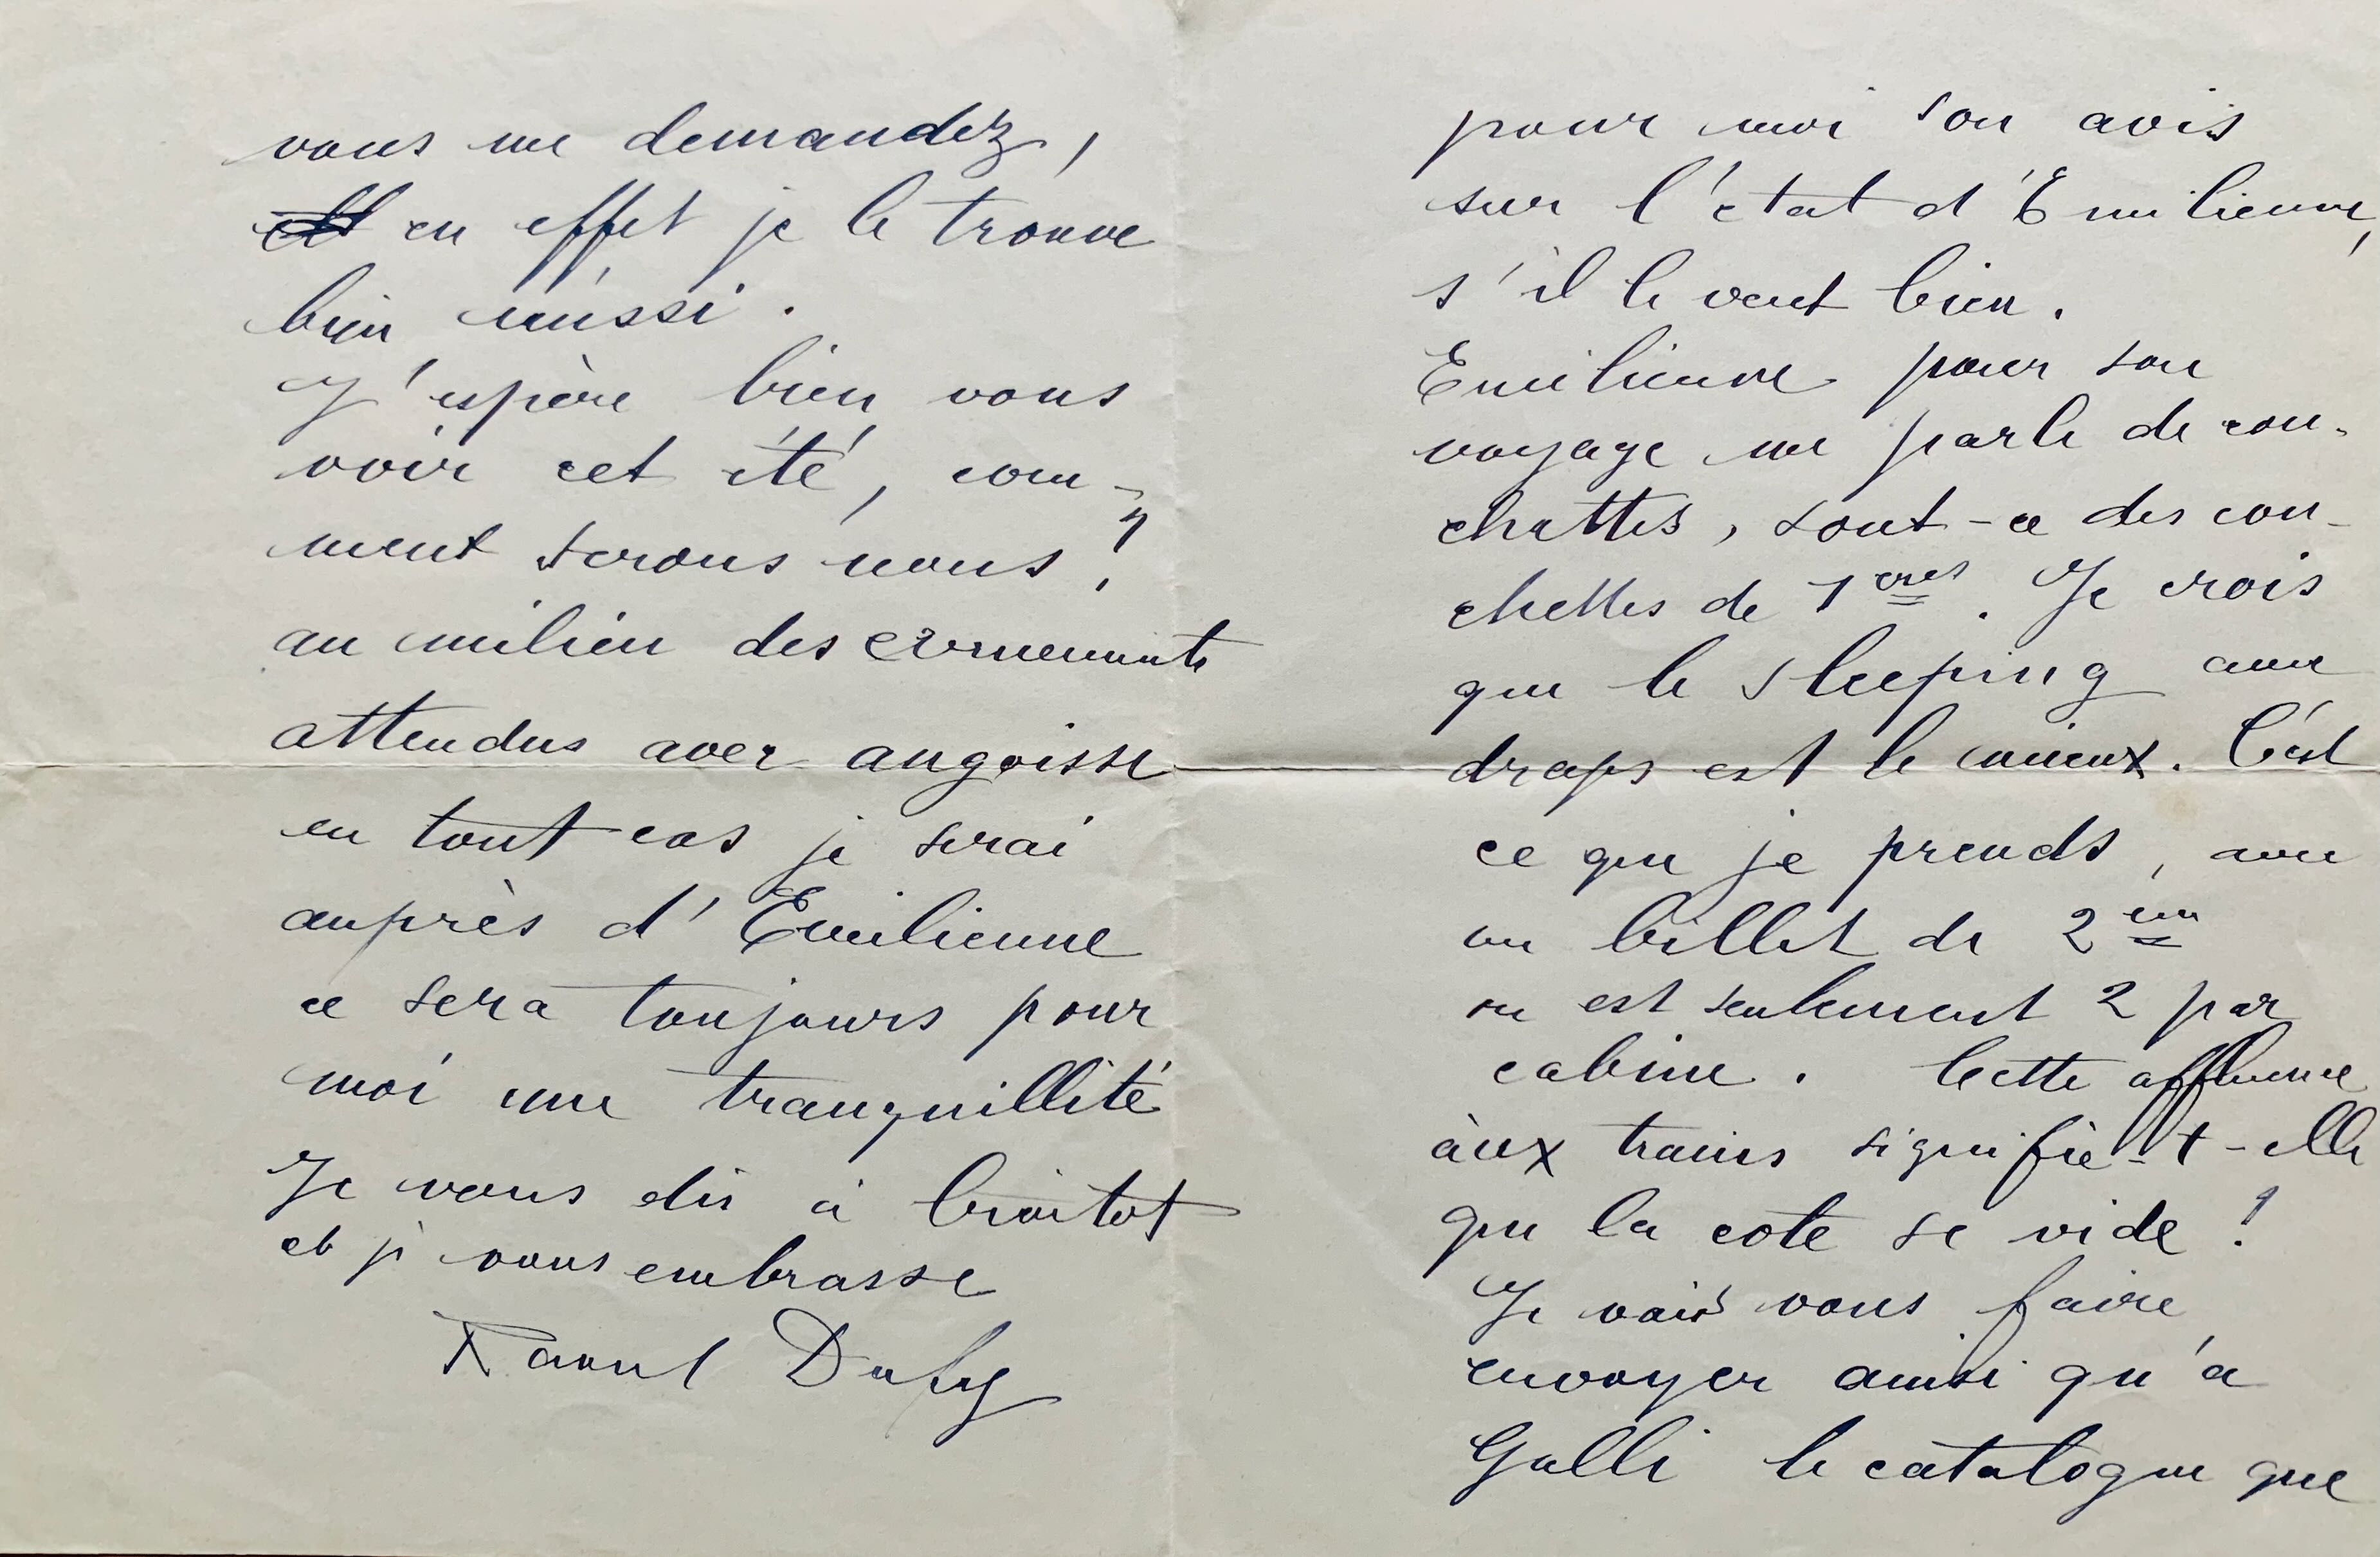 pour moi son avis
sur l'état d'Emilienne,
s'il le veut bien.
Emilienne pour son
voyage me parle de cou-
chettes, sont-ce des cou-
chettes de 1eres. Je crois
que le sleeping avec
draps est le mieux. C'est
ce que je prends, avec
un billet de 2eme
on est seulement 2 par
cabine. Cette affluence
aux trains signifie-t-elle
que la cote se vide ?
Je vais vous faire
envoyer ainsi qu'a
Galli le catalogue que
vous me demandez,
en effet je le trouve
bien réussi.
J'espère bien vous
voir cet été, com-
ment serons nous ?
au milieu des evenements
attendus avec angoisse
en tout cas je serai
auprès d'Emilienne
ce sera toujours pour
moi une tranquillité
Je vous dis à bientot
et je vous embrasse
Raoul Dufy